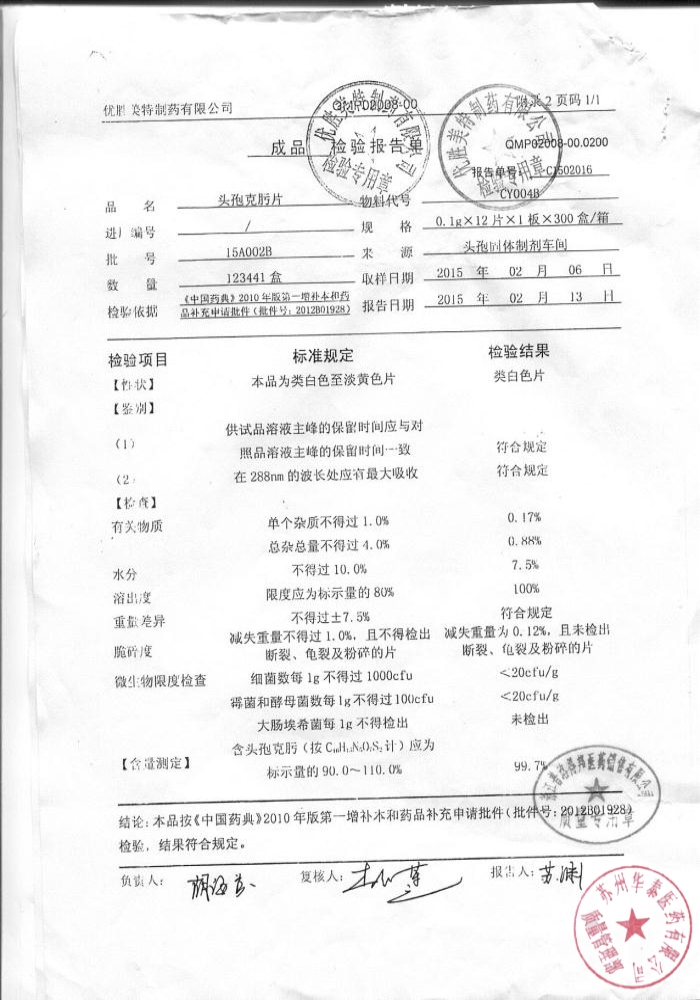 优胜美特制药有限公司 QMP02008-00 附录2 页码 1/1
成品 检验报告单 QMP02008-00.0200
报告单号: C1502016
品 名 头孢克肟片 物料代号 CY004B
进厂编号 / 规 格 0.1g×12片×1板×300盒/箱
批 号 15A002B 来 源 头孢固体制剂车间
数 量 123441 盒 取样日期 2015 年 02 月 06 日
检验依据 《中国药典》2010年版第一增补本和药品补充申请批件(批件号: 2012B01928) 报告日期 2015 年 02 月 13 日
检验项目 标准规定 检验结果
【性状】 本品为类白色至淡黄色片 类白色片
【鉴别】
(1) 供试品溶液主峰的保留时间应与对
照品溶液主峰的保留时间一致 符合规定
(2) 在288nm的波长处应有最大吸收 符合规定
【检查】
有关物质 单个杂质不得过1.0% 0.17%
总杂总量不得过4.0% 0.88%
水分 不得过10.0% 7.5%
溶出度 限度应为标示量的80% 100%
重量差异 不得过±7.5% 符合规定
脆碎度 减失重量不得过1.0%, 且不得检出 减失重量为0.12%, 且未检出
断裂、龟裂及粉碎的片 断裂、龟裂及粉碎的片
微生物限度检查 细菌数每1g不得过1000cfu <20cfu/g
霉菌和酵母菌数每1g不得过100cfu <20cfu/g
大肠埃希菌每1g不得检出 未检出
【含量测定】 含头孢克肟(按 计)应为
标示量的90.0~110.0% 99.7%
结论: 本品按《中国药典》2010年版第一增补本和药品补充申请批件(批件号: 2012B01928)
检验, 结果符合规定。
负责人: 复核人: 报告人:
优胜美特制药有限公司
检验专用章
优胜美特制药有限公司
检验专用章
质量专用章
苏州华泰医药有限公司